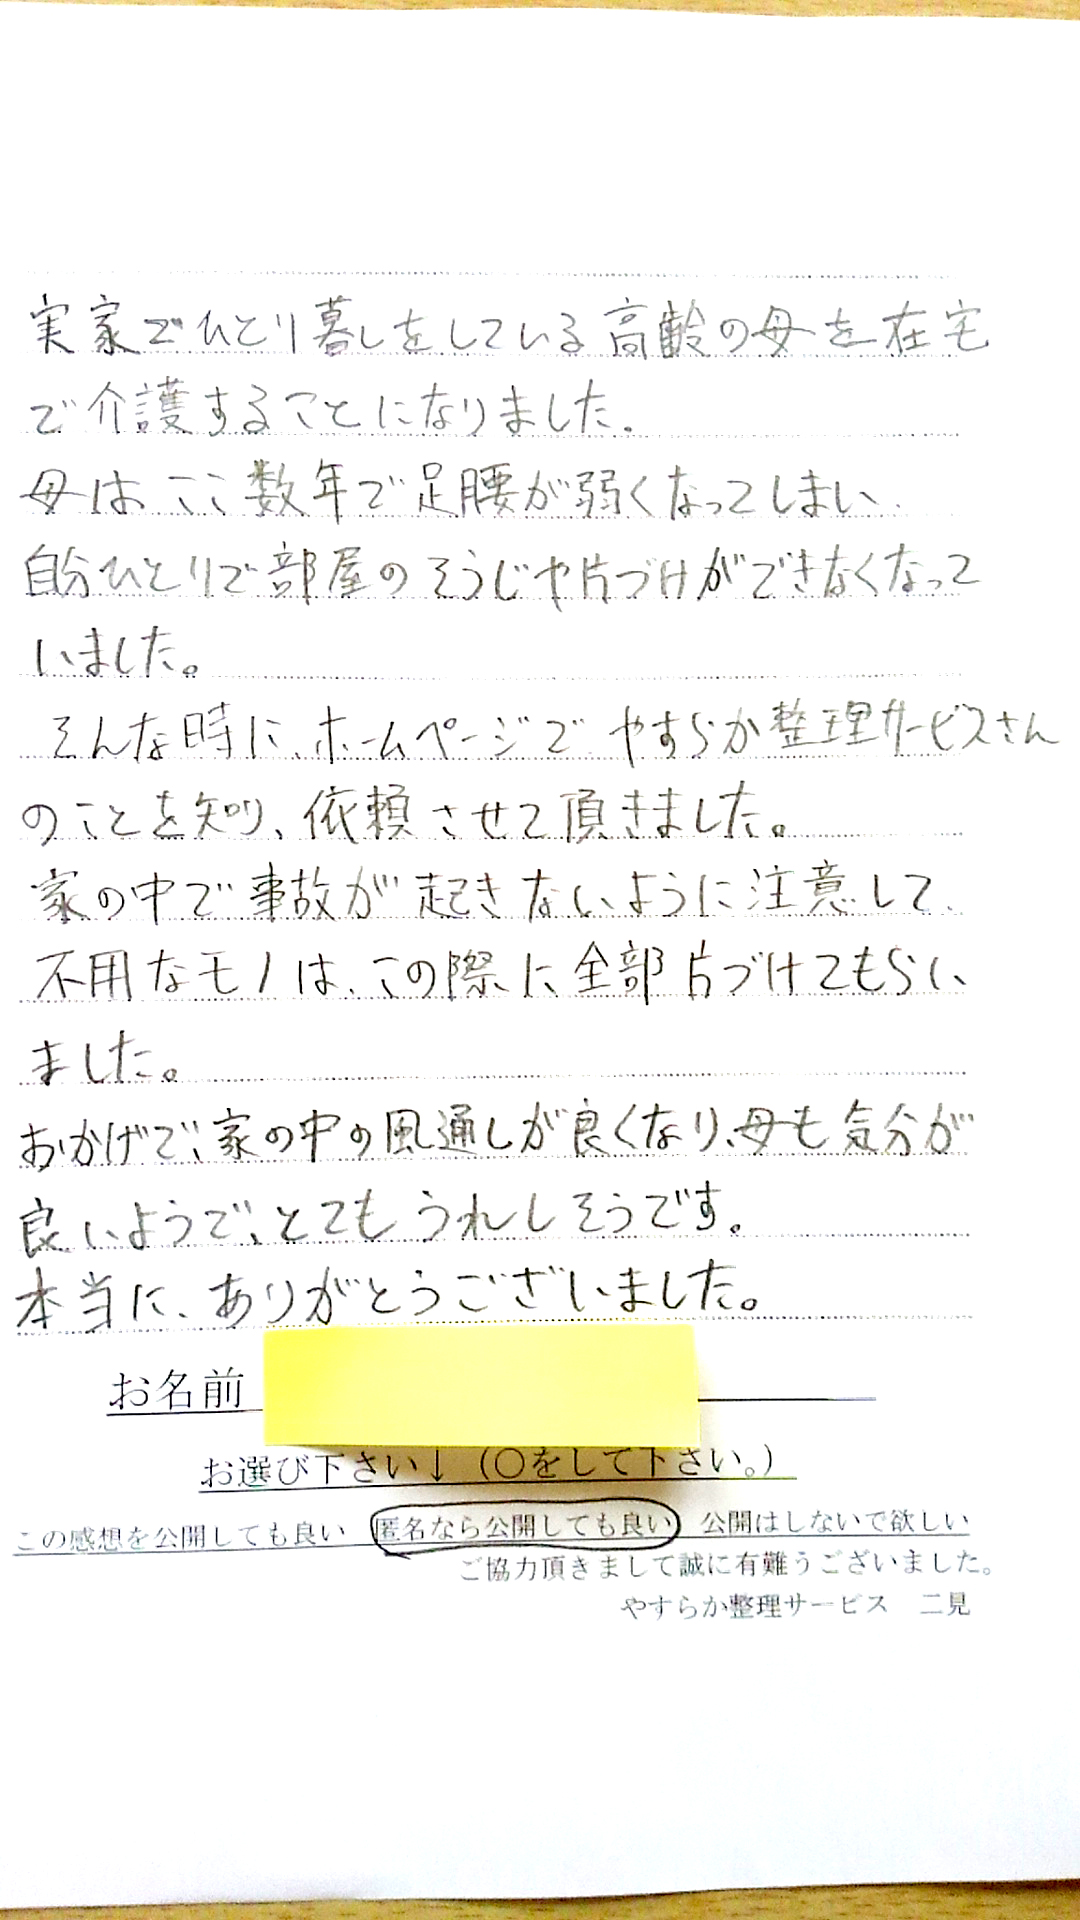 実家でひとり暮しをしている高齢の母を在宅
で介護することになりました。
母は、ここ数年で足腰が弱くなってしまい、
自分ひとりで部屋のそうじや片づけができなくなって
いました。
そんな時に、ホームページで、やすらか整理サービスさん
のことを知り、依頼させて頂きました。
家の中で事故が起きないように注意して、
不用なモノは、この際に全部片づけてもらい
ました。
おかげで、家の中の風通しが良くなり、母も気分が
良いようで、とてもうれしそうです。
本当に、ありがとうございました。
お名前
お選び下さい↓（〇をして下さい。）
この感想を公開しても良い　匿名なら公開しても良い　公開はしないで欲しい
ご協力頂きまして誠に有難うございました。
やすらか整理サービス　二見